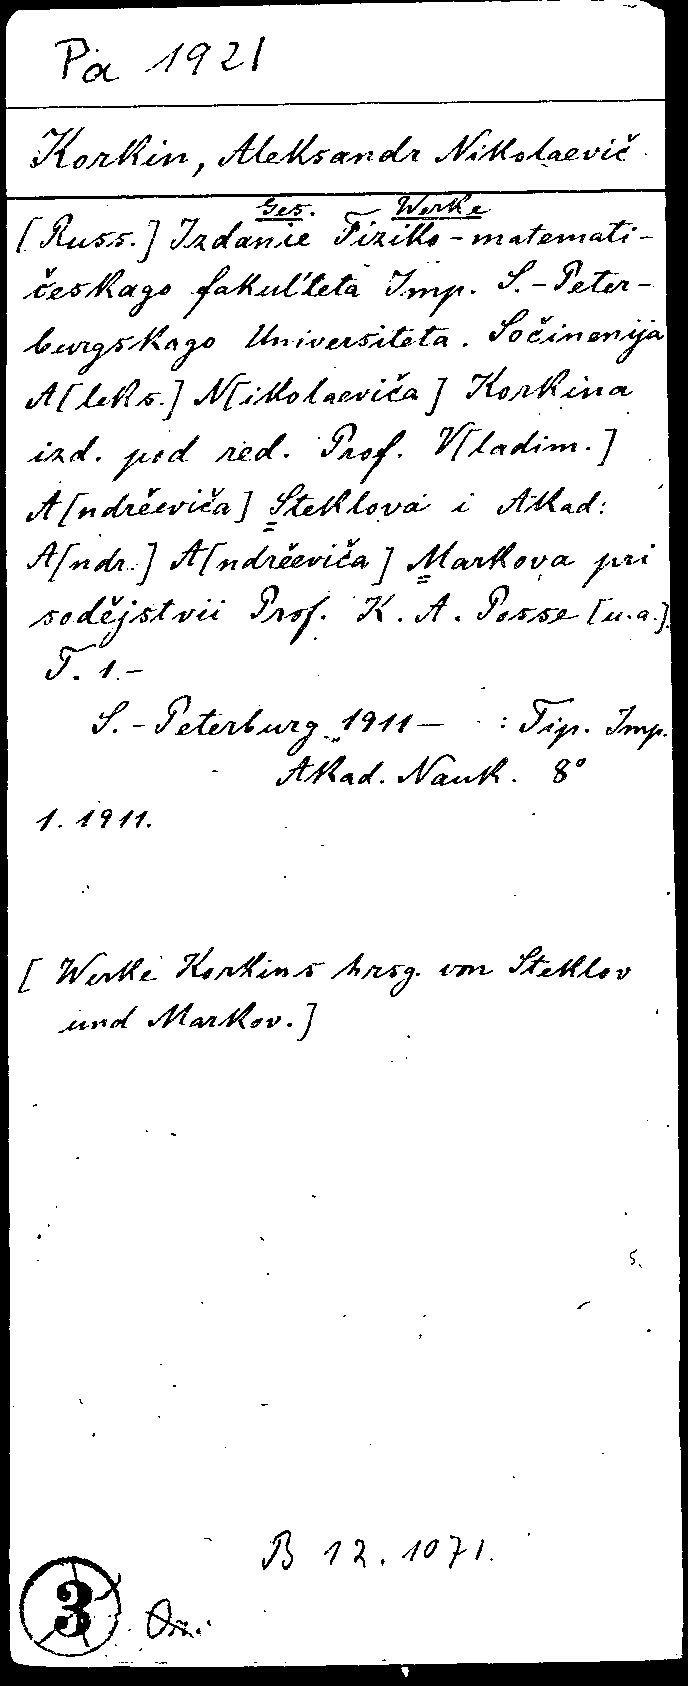 Pa 1921
Korkin, Aleksandr Nikolaevič
Ges. Werke
[Russ.] Izdanie Fiziko-matemati-
českago fakul'teta Imp. S.-Peter-
burgskago Universiteta. Sočinenija
A[leks.] N[ikolaeviča] Korkina
izd. pod red. Prof. V[ladim.]
A[ndrěeviča] Steklova i Akad.
A[ndr.] A[ndrěeviča] Markova pri
sodějstvii Prof. K. A. Posse [u.a.].
T. 1.-
S.-Peterburg 1911- : Tip. Imp.
Akad. Nauk. 8°
1. 1911.
[Werke Korkins hrsg. von Steklov
und Markov.]
B 12. 1071.
3